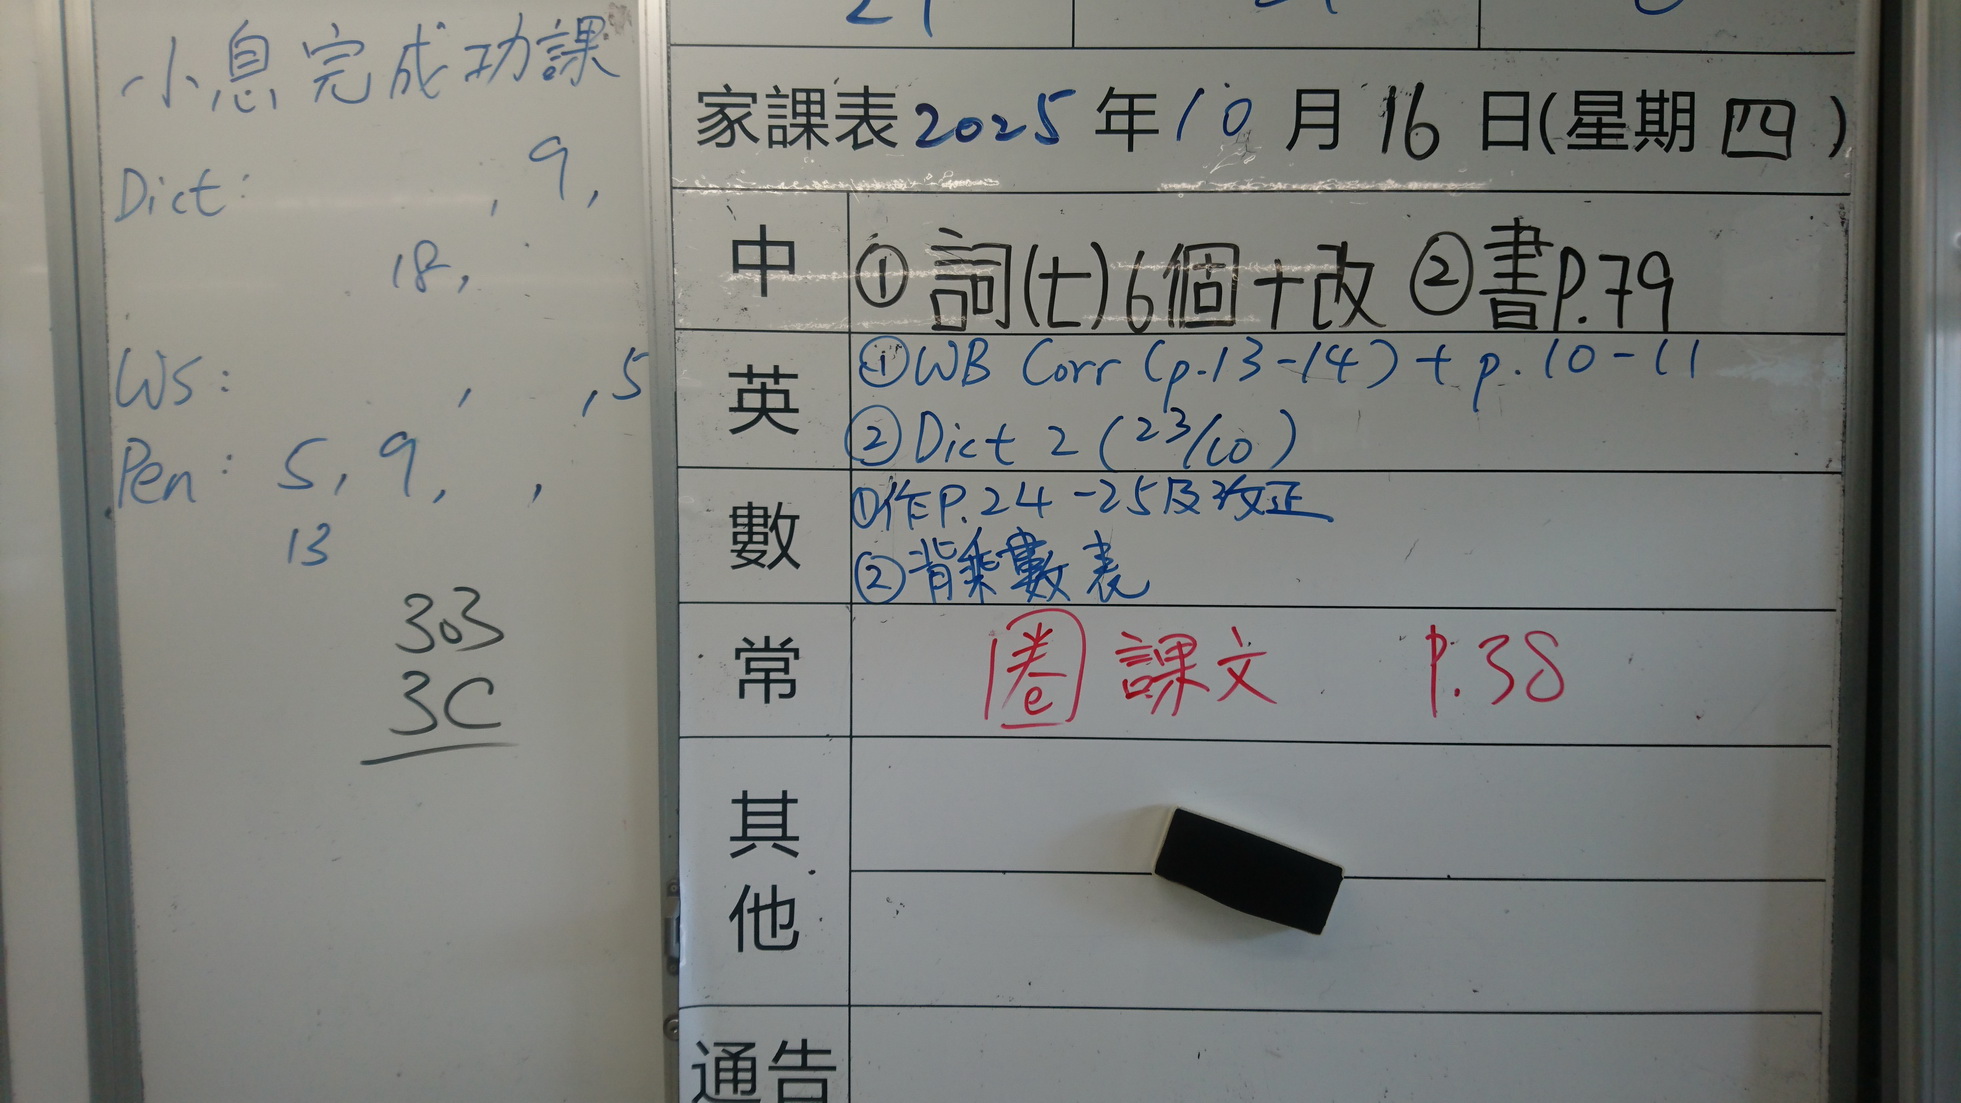 小息完成功課
Dict: , 9,
18,
WS: , ,5
Pen: 5, 9, ,
13
303
3C
家課表2025年10月16日(星期四)
中
①詞(七)6個+改 ②書P.79
英
①WB Corr (p.13-14) + p.10-11
②Dict 2 (23/10)
數
①作P.24-25及改正
②背乘數表
常
圈課文 P.38
其他
通告